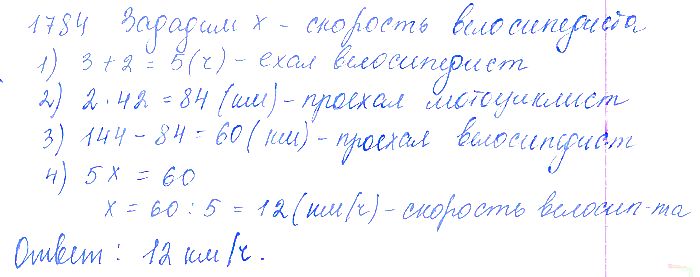 1784 Зададим x - скорость велосипедиста
1) 3 + 2 = 5 (ч) - ехал велосипедист
2) 2 · 42 = 84 (км) - проехал мотоциклист
3) 144 - 84 = 60 (км) - проехал велосипедист
4) 5x = 60
x = 60 : 5 = 12 (км/ч) - скорость велосип-та
Ответ: 12 км/ч.